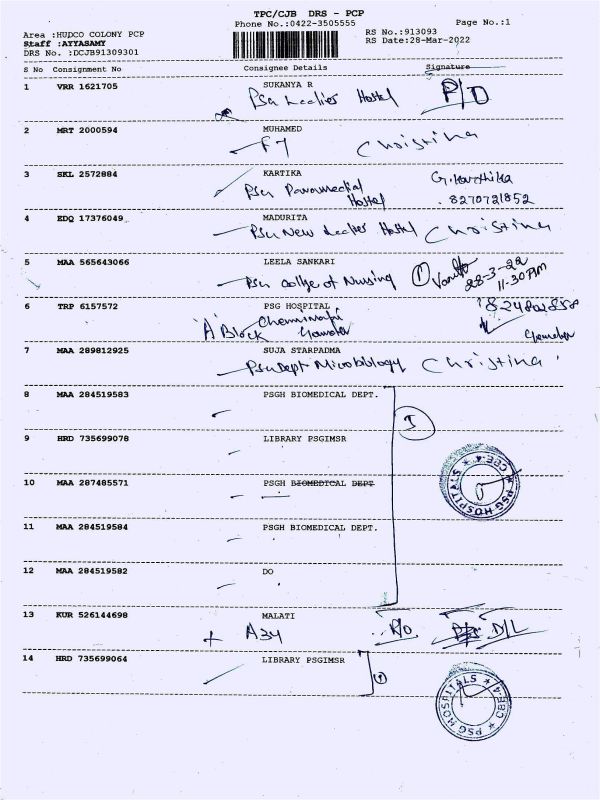 TPC/CJB DRS - PCP
Phone No.:0422-3505555
Page No.:1
Area :HUDCO COLONY PCP
RS No.:913093
Staff :AIYASAMY
RS Date:28-Mar-2022
DRS No. :DCJB91309301
S No Consignment No Consignee Details Signature
1 VRR 1621705 SUKANYA R
Psg Ladies Hostel P/D
2 MRT 2000594 MUHAMED
F7 Christina
3 SKL 2572884 KARTIKA
Psg Paramedical Hostel G. Karthika
8270721852
4 EDQ 17376049 MADURITA
Psg New Ladies Hostel Christina
5 MAA 565643066 LEELA SANKARI
Psg College of Nursing 1
28-3-22
11.30 PM
6 TRP 6157572 PSG HOSPITAL
'A' Block
7 MAA 289812925 SUJA STARPADMA
Psg Dept Microbiology Christina
8 MAA 284519583 PSGH BIOMEDICAL DEPT.
9 HRD 735699078 LIBRARY PSGIMSR
10 MAA 287485571 PSGH BIOMEDICAL DEPT
11 MAA 284519584 PSGH BIOMEDICAL DEPT.
12 MAA 284519582 DO
PSG HOSPITALS CBE-4
13 KUR 526144698 MALATI
A34 R/O D/L
14 HRD 735699064 LIBRARY PSGIMSR
PSG HOSPITALS CBE-4